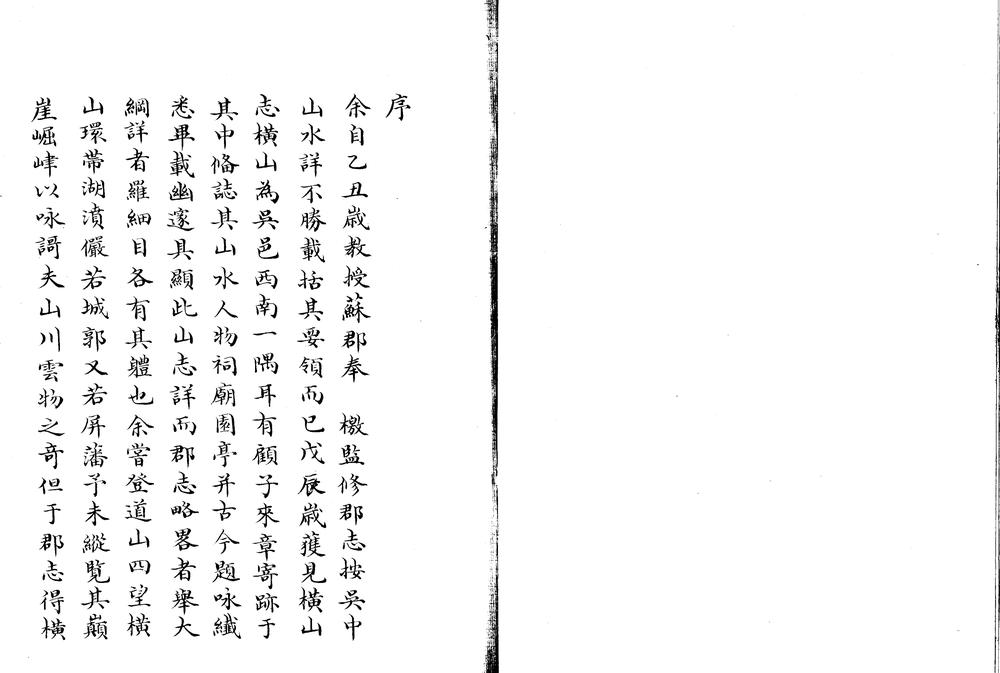 序
余自乙丑歲教授蘇郡奉　檄監修郡志按吳中
山水詳不勝載括其要領而已戊辰歲獲見橫山
志橫山為吳邑西南一隅耳有顧子來章寄跡于
其中俻誌其山水人物祠廟園亭并古今題咏纖
悉畢載幽邃具顯此山志詳而郡志略畧者舉大
綱詳者羅細目各有其軆也余嘗登道山四望橫
山環帶湖濆儼若城郭又若屏藩予未縱覽其巔
崖崛峍以咏謌夫山川雲物之竒但于郡志得橫